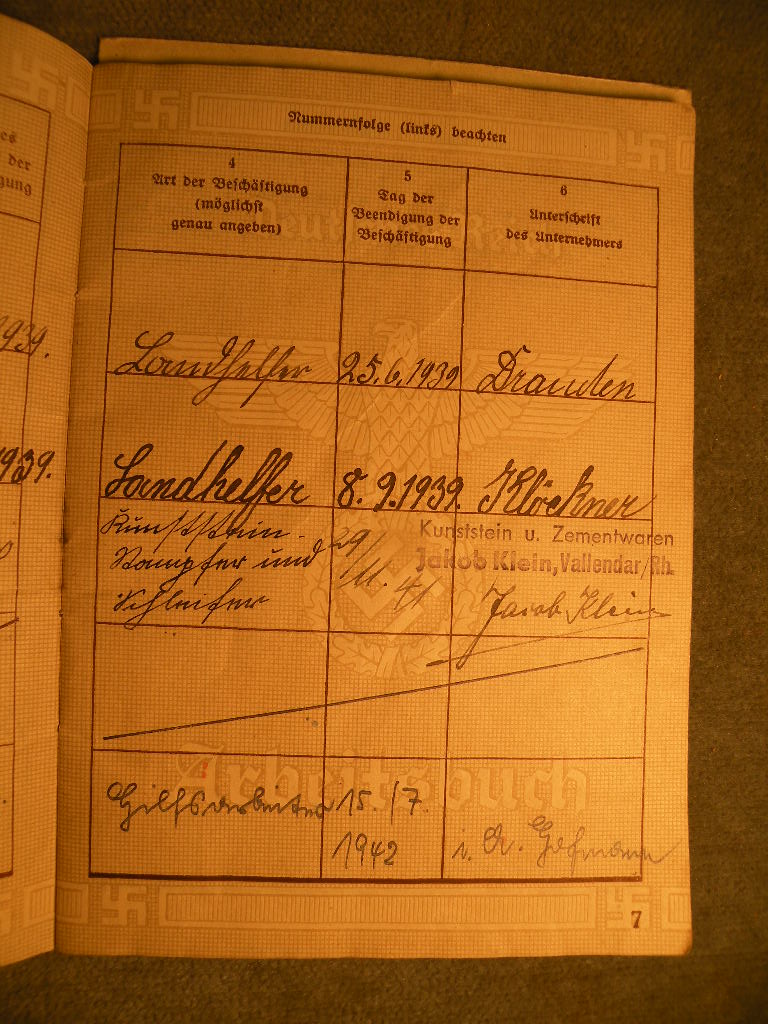 es
der
gung
1939.
1939.
Nummernfolge (links) beachten
4
Art der Beschäftigung
(möglichst
genau angeben)
5
Tag der
Beendigung der
Beschäftigung
6
Unterschrift
des Unternehmers
Landhelfer 25.6.1939
Landhelfer 8.9.1939. Klöckner
Kunststein-
Stampfer und
Schleifer
29/
11. 41
Kunststein u. Zementwaren
Jakob Klein, Vallendar/Rh.
Jacob Klein
Arbeitsbuch
Hilfsarbeiter 15./7.
1942
i. A. Hofmann
7